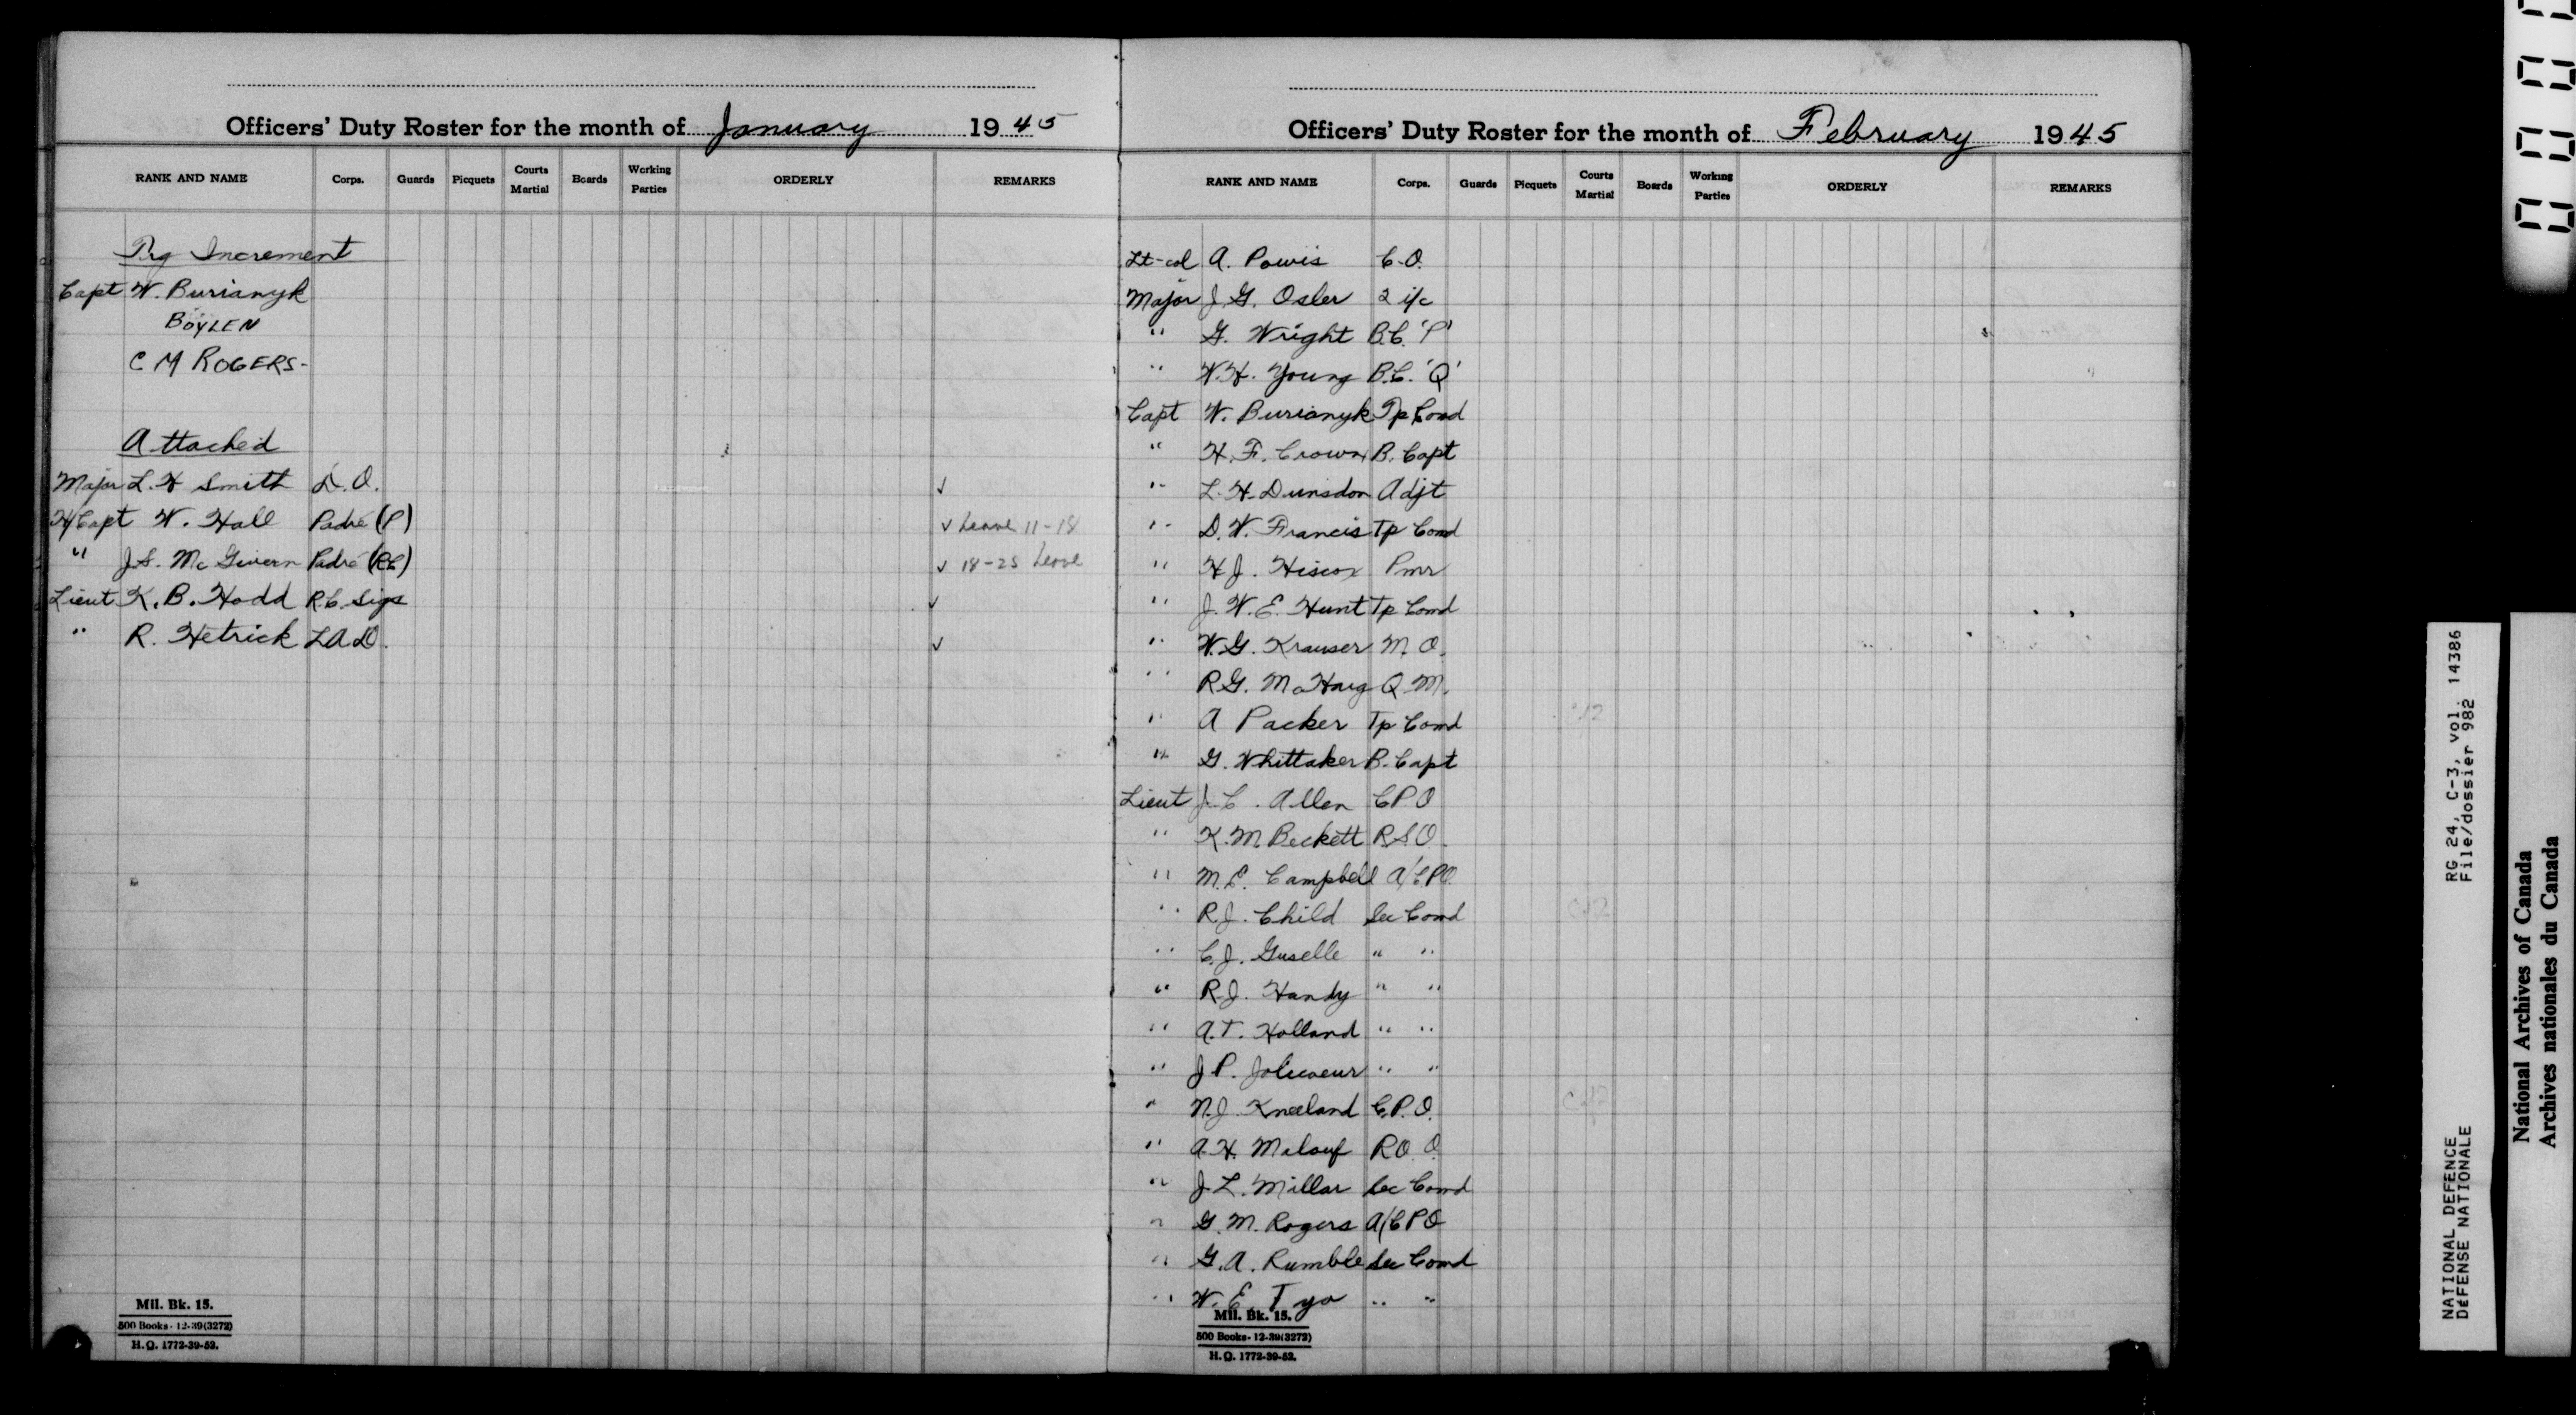 Officers' Duty Roster for the month of January 1945
RANK AND NAME Corps. Guards Picquets Courts Martial Boards Working Parties ORDERLY REMARKS
Trg Increment
Capt W. Burianyk
BOYLEN
C M ROGERS-
Attached
Major L. H Smith D.O. ✓
H/Capt W. Hall Padre (P) ✓ Leave 11-18
" J.S. McGivern Padre (RC) ✓ 18-25 Leave
Lieut K. B. Hodd R.C. Sigs ✓
" R. Hetrick LAD. ✓
Mil. Bk. 15.
500 Books-12-39(3272)
H.Q. 1772-39-52.
Officers' Duty Roster for the month of February 1945
RANK AND NAME Corps. Guards Picquets Courts Martial Boards Working Parties ORDERLY REMARKS
Lt-col A. Powis C.O.
Major J.G. Osler 2 i/c
" G. Wright B.C. 'P'
" W.H. Young B.C. 'Q'
Capt W. Burianyk Tp Comd
" H. F. Crown B. Capt
" L. H. Dunsdon Adjt
" D. W. Francis Tp Comd
" H J. Hiscox Pmr
" J. W. E. Hunt Tp Comd
" W. G. Krauser M. O.
" R G. McHarg Q.M.
" A Packer Tp Comd
" G. Whittaker B. Capt
Lieut J. C. Allen CPO
" K. M. Beckett RSO.
" M. E. Campbell A/CPO
" R. J. Child Sec Comd
" C. J. Guselle " "
" R. J. Handy " "
" A. T. Holland " "
" J P. Jolicoeur " "
" N. J. Kneeland C.P.O.
" A. H. Malouf R O O.
" J. L. Millar Sec Comd
" G. M. Rogers A/CPO
" G. A. Rumble Sec Comd
" W. E. Tyo " "
Mil. Bk. 15.
500 Books-12-39(3272)
H.Q. 1772-39-52.
RG 24, C-3, vol. 14386
File/dossier 982
NATIONAL DEFENCE
DÉFENSE NATIONALE
National Archives of Canada
Archives nationales du Canada